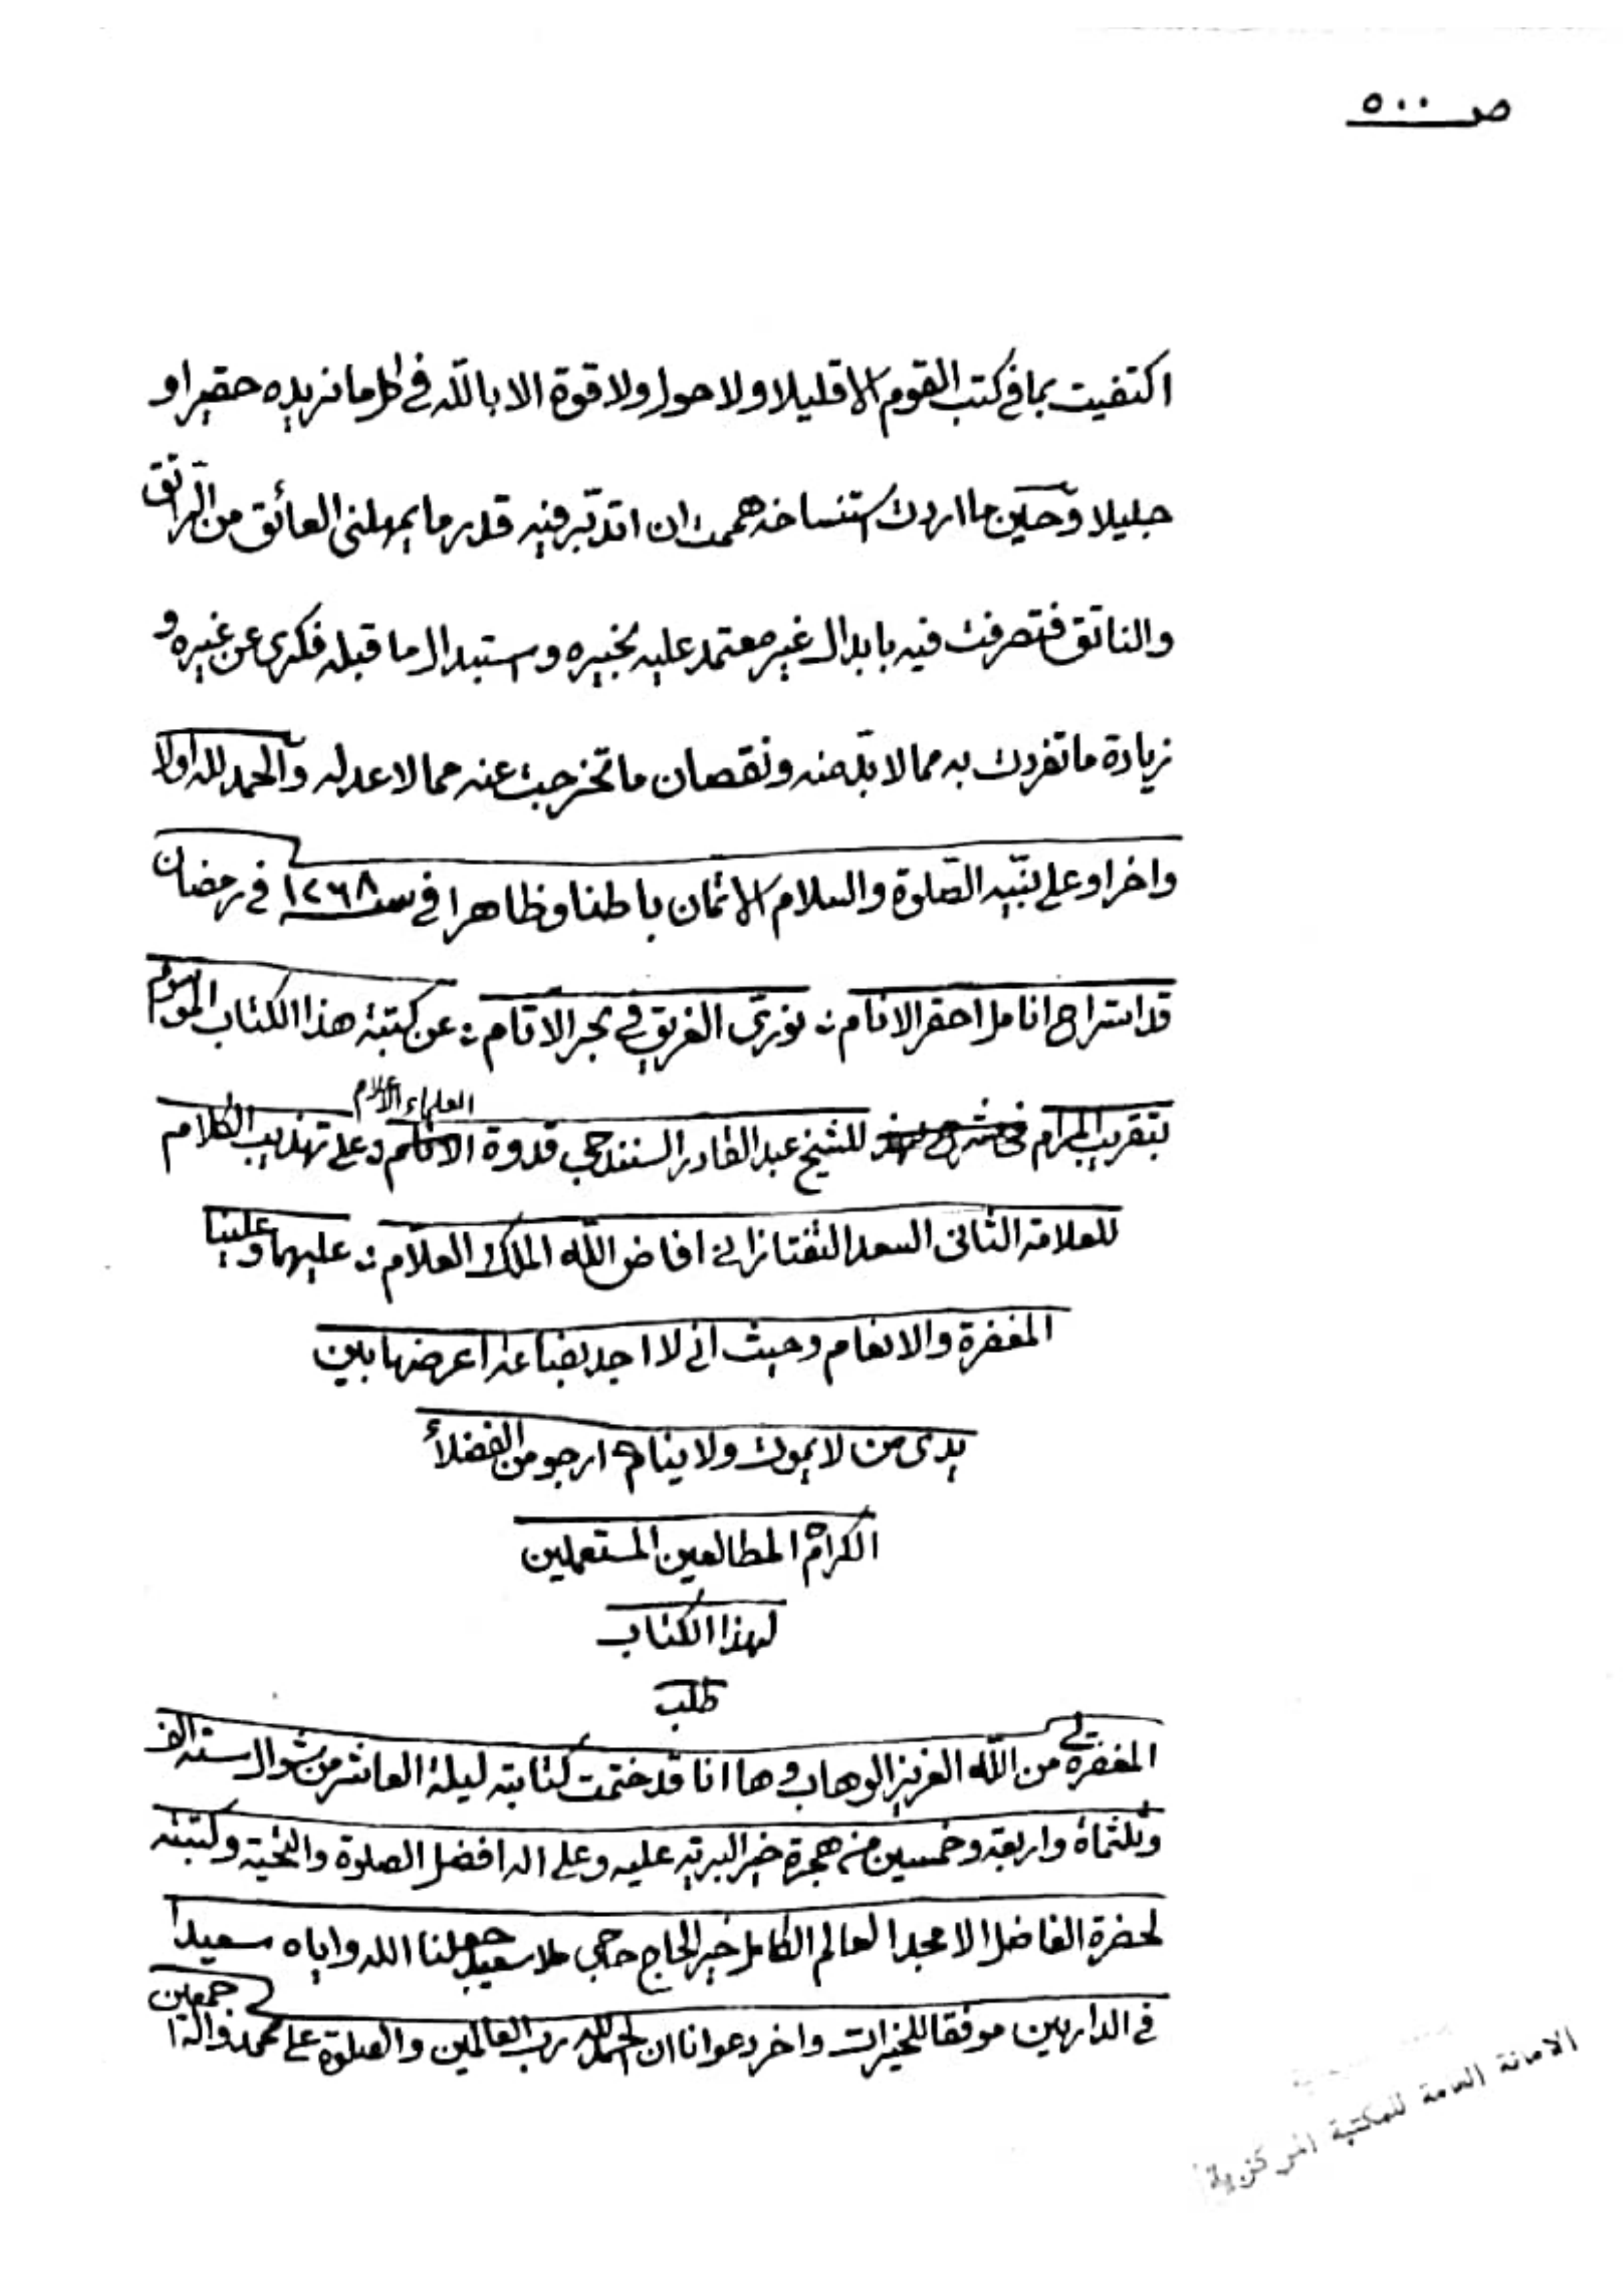 ص ٥٠٠
اكتفيت بما في كتب القوم الا قليلا ولا حول ولا قوة الا بالله في كل ما نريده حقيرا و
جليلا وحين ما اردت استنساخه هممت ان اتدبر فيه قدر ما يمهلني العائق من الراتق
والناتق فتصرفت فيه بابدال غير معتمد عليه بخيره و ستبدال ما قبله فكرى عن غيره و
زيادة ما تفردت به مما لا بد منه ونقصان ما تخرجت عنه مما لا عدله والحمد لله اولا
واخرا وعلى نبيه الصلوة والسلام الاتمان باطنا وظاهرا في سنه ١٢٦٨ في رمضان
قد استراح انامل احقر الانام : نورى الغريق في بحر الاثام : عن كتبة هذا الكتاب الموسوم
بتقريب المرام للشيخ عبد القادر السنندجى قدوة العلماء الاعلام وعلى تهذيب الكلام
للعلامة الثانى السعد التفتازانى افاض الله الملك العلام : عليهما وعلينا
المغفرة والانعام وحيث انى لا اجد بضاعة اعرضها بين
يدى من لا يموت ولا ينام ارجو من الفضلاء
الكرام المطالعين المستعملين
لهذا الكتاب
طلب
المغفرة لى من الله العزيز الوهاب وها انا قد ختمت كتابته ليلة العاشر من شوال سنه الف
وثلثماة واربعة وخمسين من هجرة خير البرية عليه وعلى اله افضل الصلوة والتحية وكتبته
لحضرة الفاضل الامجد العالم الكامل خير الحاج حاجى ملا سعيد جعلنا الله واياه سعيدا
في الدارين موفقا للخيرات واخر دعوانا ان الحمد لله رب العالمين والصلوة على محمد واله اجمعين
الامانة العامة للمكتبة المركزية